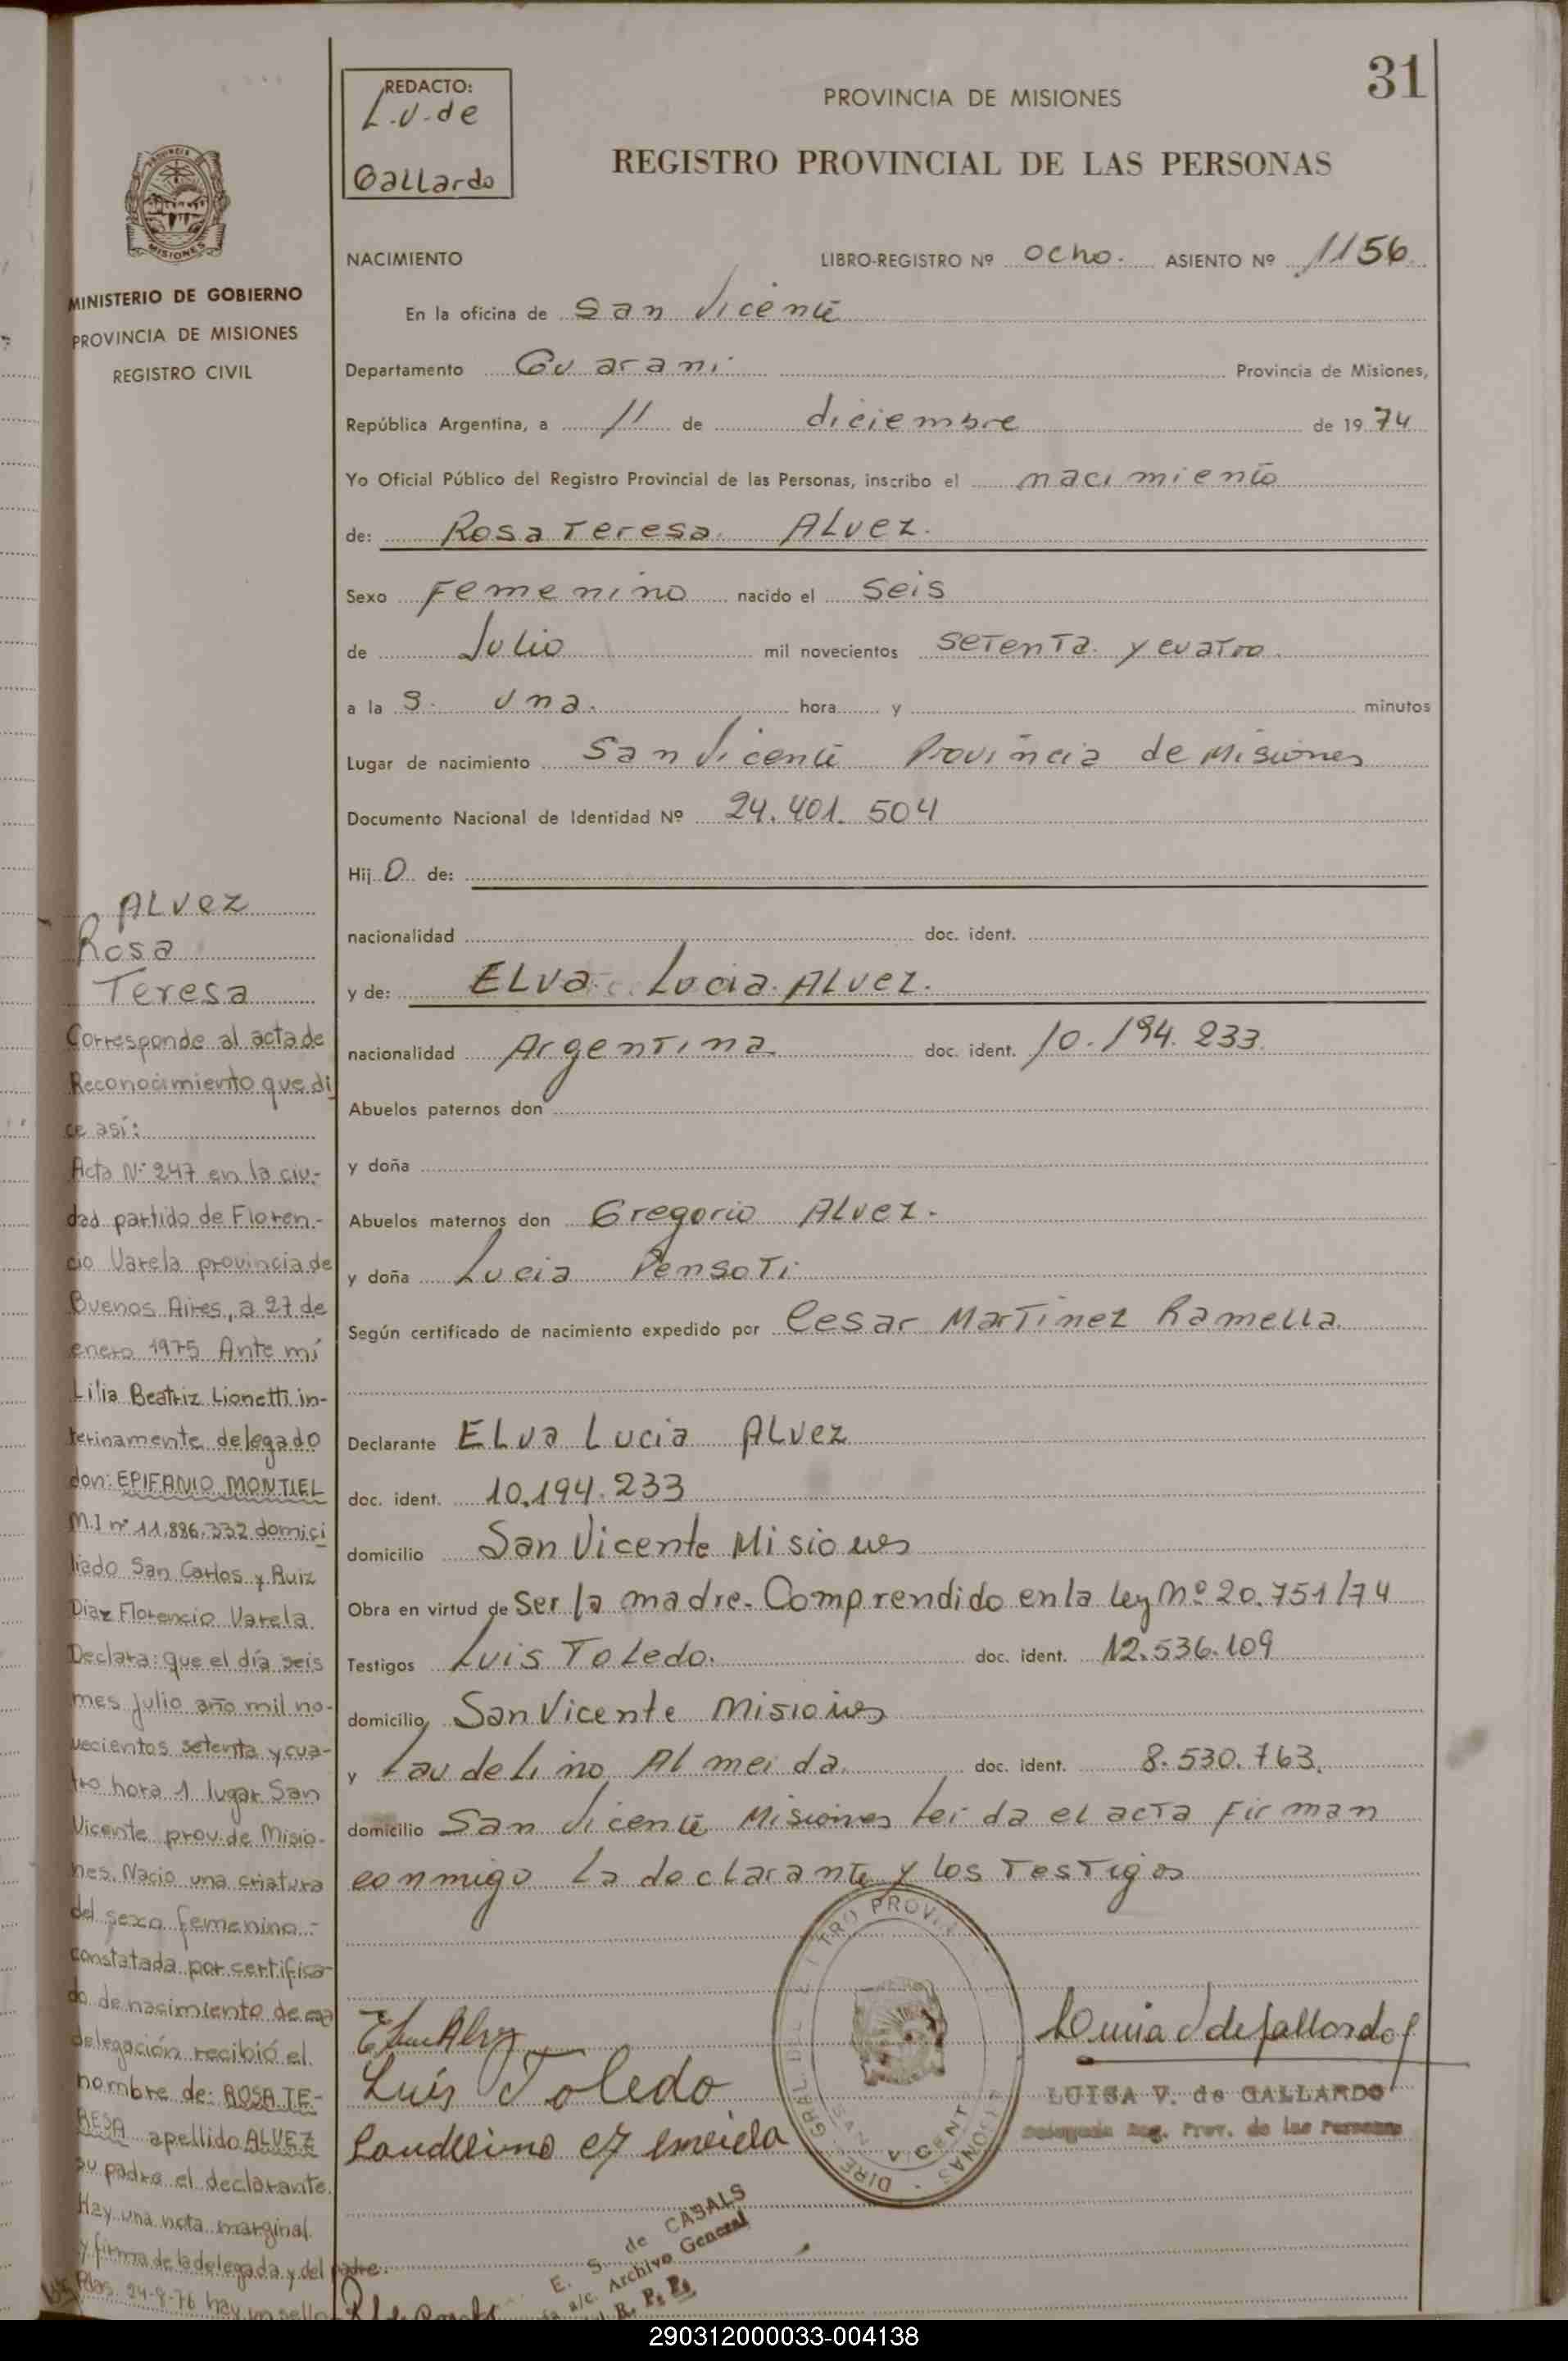 31
REDACTO:
L.V. de
Gallardo
PROVINCIA DE MISIONES
REGISTRO PROVINCIAL DE LAS PERSONAS
PROVINCIA
MISIONES
MINISTERIO DE GOBIERNO
PROVINCIA DE MISIONES
REGISTRO CIVIL
NACIMIENTO LIBRO-REGISTRO Nº ocho. ASIENTO Nº 1156
En la oficina de San Vicente
Departamento Guarani Provincia de Misiones,
República Argentina, a 11 de diciembre de 1974
Yo Oficial Público del Registro Provincial de las Personas, inscribo el nacimiento
de: Rosa Teresa ALvez.
Sexo Femenino nacido el seis
de Julio mil novecientos setenta y cuatro
a la s. una. hora y minutos
Lugar de nacimiento San Vicente Provincia de Misiones
Documento Nacional de Identidad Nº 24.401.504
Hij o de:
nacionalidad doc. ident.
y de: ELva Lucia ALvez.
nacionalidad Argentina doc. ident. 10.194.233
Abuelos paternos don
y doña
Abuelos maternos don Gregorio ALvez.
y doña Lucia Pensoti
Según certificado de nacimiento expedido por Cesar Martinez Ramella
Declarante ELva Lucia ALvez
doc. ident. 10.194.233
domicilio San Vicente Misiones
Obra en virtud de ser la madre. Comprendido en la Ley Nº 20.751/74
Testigos Luis Toledo. doc. ident. 12.536.109
domicilio San Vicente Misiones
y Laudelino Almeida doc. ident. 8.530.763.
domicilio San Vicente Misiones leida el acta firman
conmigo la declarante y los testigos
Luís Toledo
LUISA V. de GALLARDO
Delegada Reg. Prov. de las Personas
VICENTE
E. S. de CASALS
a/c. Archivo General
R. P. P.
ALvez
Rosa
Teresa
Corresponde al acta de
Reconocimiento que di
ce así:
Acta Nº 247 en la ciu-
dad partido de Floren-
cio Varela provincia de
Buenos Aires, a 27 de
enero 1975 Ante mí
Lilia Beatriz Lionetti in-
terinamente delegado
don: EPIFANIO MONTIEL
M.I nº 11.886.332 domici
liado San Carlos y Ruiz
Díaz Florencio Varela.
Declara: que el día seis
mes julio año mil no-
vecientos setenta y cua-
tro hora 1 lugar San
Vicente prov. de Misio-
nes. Nacio una criatura
del sexo femenino.-
constatada por certifica-
do de nacimiento de esa
delegación recibió el
nombre de: ROSA TE-
RESA apellido ALVEZ
su padre el declarante.
Hay una nota marginal
y firma de la delegada y del padre.
Pdas. 24-8-76 hay un sello
290312000033-004138